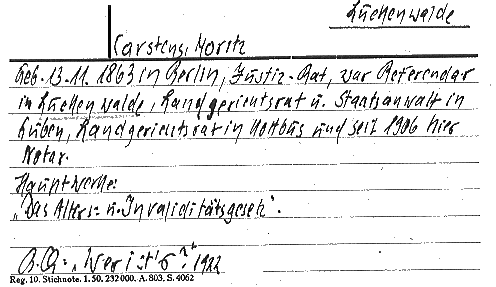 Luckenwalde
Carstens, Moritz
Geb. 13.11.1863 in Berlin, Justiz-Rat, war Referendar
in Luckenwalde, Landgerichtsrat u. Staatsanwalt in
Guben, Landgerichtsrat in Kottbus und seit 1906 hier
Notar.
Hauptwerke:
"Das Alters- u. Invaliditätsgesetz".
"Wer ist's?" 1922
Reg. 10. Stichnote. 1. 50. 232000. A. 803. S. 4062